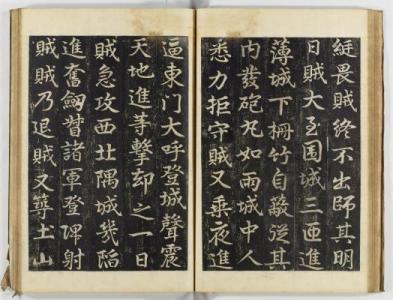 綎畏賊終不出師其明
日賊大至围城三匝進
薄城下柵竹自蔽從其
内發砲丸如雨城中人
悉力拒守賊又乗夜進
逼東门大呼登城聲震
天地進等擊却之一日
賊急攻西北隅城幾陷
進奮劒督諸軍登陴射
賊賊乃退賊又築土山